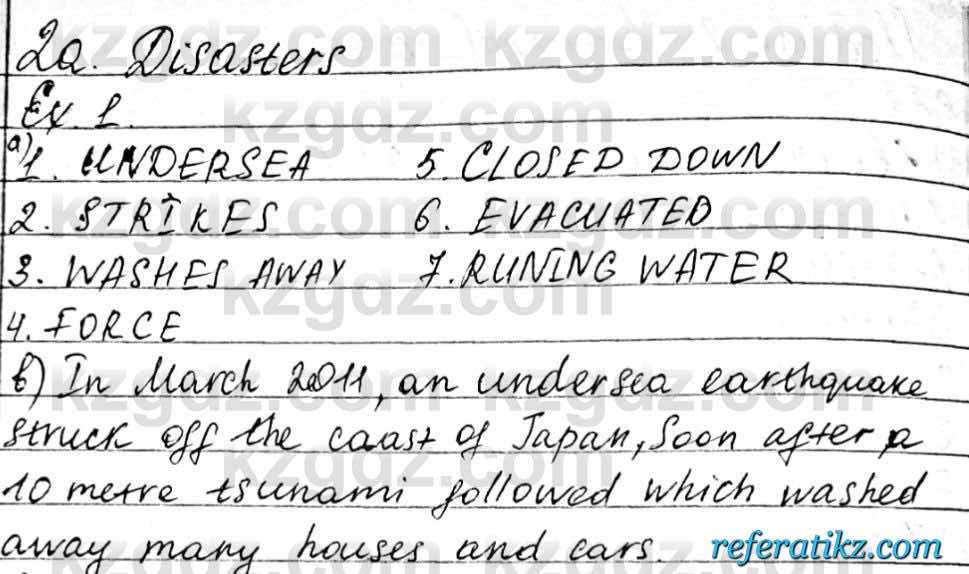 2a. Disasters
Ex 1.
a) 1. UNDERSEA 5. CLOSED DOWN
2. STRIKES 6. EVACUATED
3. WASHES AWAY 7. RUNING WATER
4. FORCE
b) In March 2011, an undersea earthquake
struck off the caast of Japan, Soon after a
10 metre tsunami followed which washed
away many houses and cars.
kzgdz.com
referatikz.com